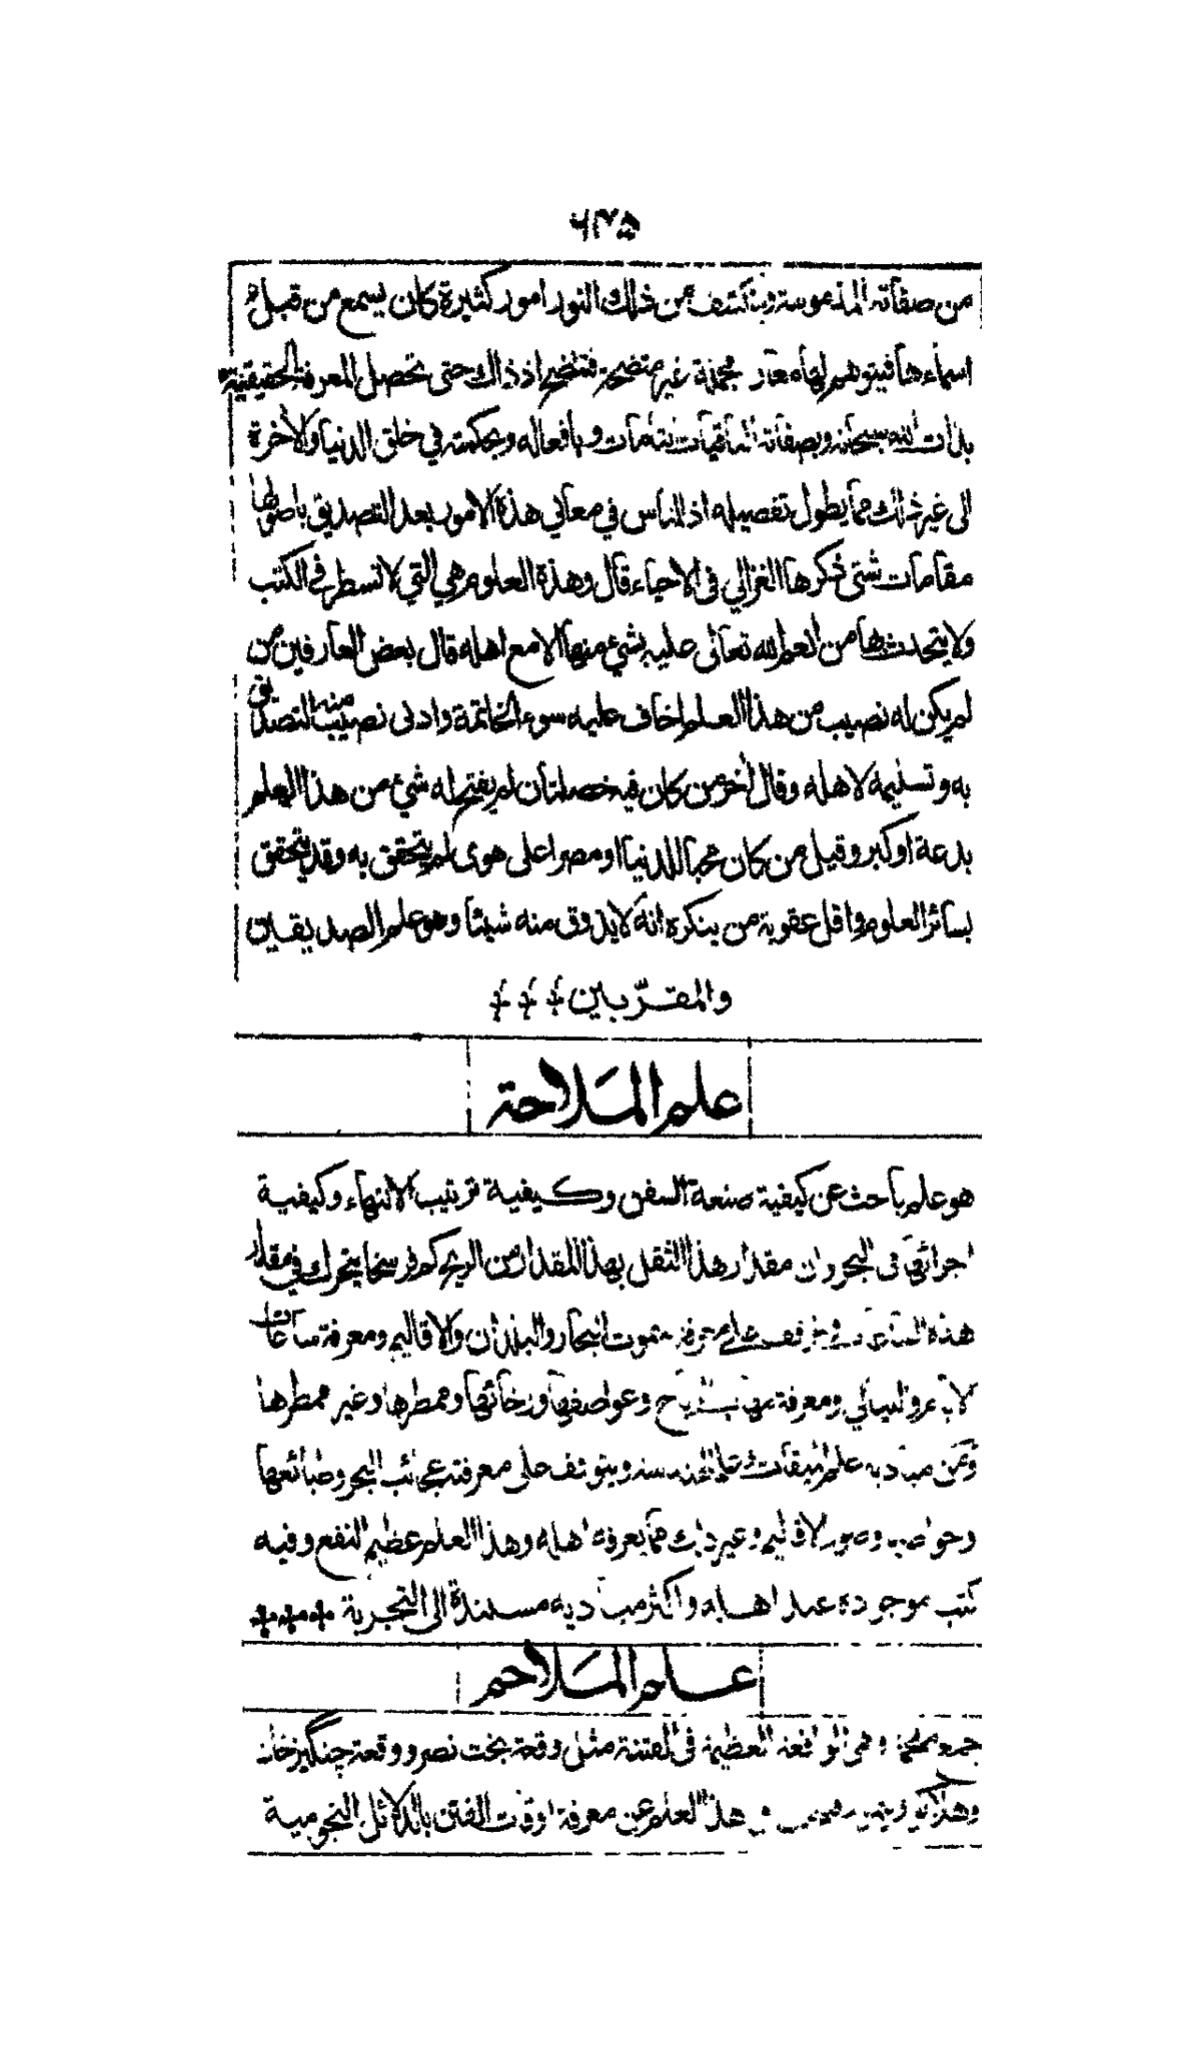 ٦٣٥
من صفاته المذمومة وينكشف من ذلك النور امور كثيرة كان يسمع من قبل
اسماءها فيتوهم لها معان مجملة غير متضحة فتتضح اذ ذاك حتى تحصل المعرفة الحقيقية
بذات الله سبحانه وبصفاته الباقيات التامات وبافعاله وبحكمته في خلق الدنيا والأخرة
الى غير ذلك مما يطول تفصيله اذ للناس في معاني هذه الامور بعد التصديق باصولها
مقامات شتى ذكرها الغزالي في الاحياء قال وهذه العلوم هي التي لا تسطر في الكتب
ولا يتحدث بها من انعم الله تعالى عليه بشيء منها الا مع اهله قال بعض العارفين من
لم يكن له نصيب من هذا العلم اخاف عليه سوء الخاتمة وادنى نصيب منه التصديق
به وتسليمه لاهله وقال أخر من كان فيه خصلتان لم يفتح له شيء من هذا العلم
بدعة او كبر وقيل من كان محبا للدنيا او مصرا على هوى لم يتحقق به وقد يتحقق
بسائر العلوم واقل عقوبة من ينكره انه لا يذوق منه شيئا وهو علم الصديقين
والمقرّبين
علم الملاحة
هو علم باحث عن كيفية صنعة السفن وكيفية ترتيب الاتها وكيفية
اجرائها في البحر وان مقدار هذا الثقل بهذا المقدار من الريح كم فرسخا يتحرك في مقدار
هذه معرفة سموت البحار والبلدان والاقاليم ومعرفة ساعات
الايام والليالي ومعرفة مهاب الرياح وعواصفها ورخائها وممطرها وغير ممطرها
ومن مباديه علم الميقات وعلم الهندسة ويتوقف على معرفة عجائب البحر وطبائعها
وخواصه وصور الاقاليم وغير ذلك مما يعرفه اهله وهذا العلم عظيم النفع وفيه
كتب موجودة عند اهله واكثر مباديه مستندة الى التجربة
علم الملاحم
جمع ملحمة وهي الواقعة العظيمة في الفتنة مثل وقعة بخت نصر ووقعة چنگيز خان
وهلاكو هذا العلم عن معرفة اوقات الفتن بالدلائل النجومية